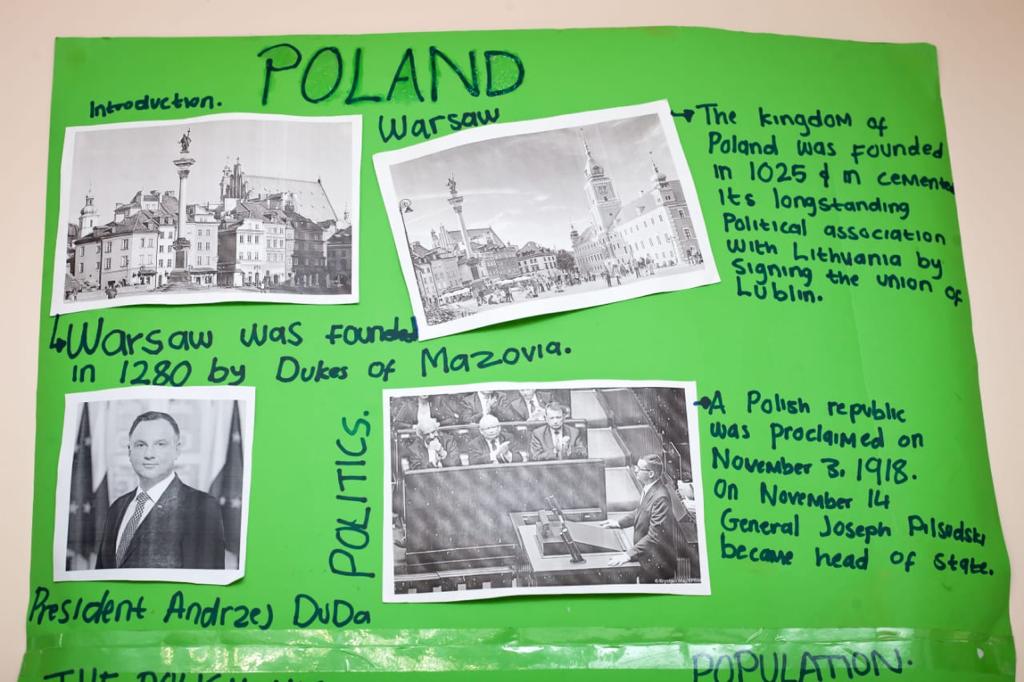 POLAND
Introduction.
Warsaw
The kingdom of
Poland was founded
in 1025 & in cemented
its longstanding
Political association
with Lithuania by
signing the union of
Lublin.
Warsaw was founded
in 1280 by Dukes of Mazovia.
POLITICS.
A Polish republic
was proclaimed on
November 3, 1918.
On November 14
General Joseph Pilsudski
became head of state.
President Andrzej DuDa
POPULATION.
THE POLISH